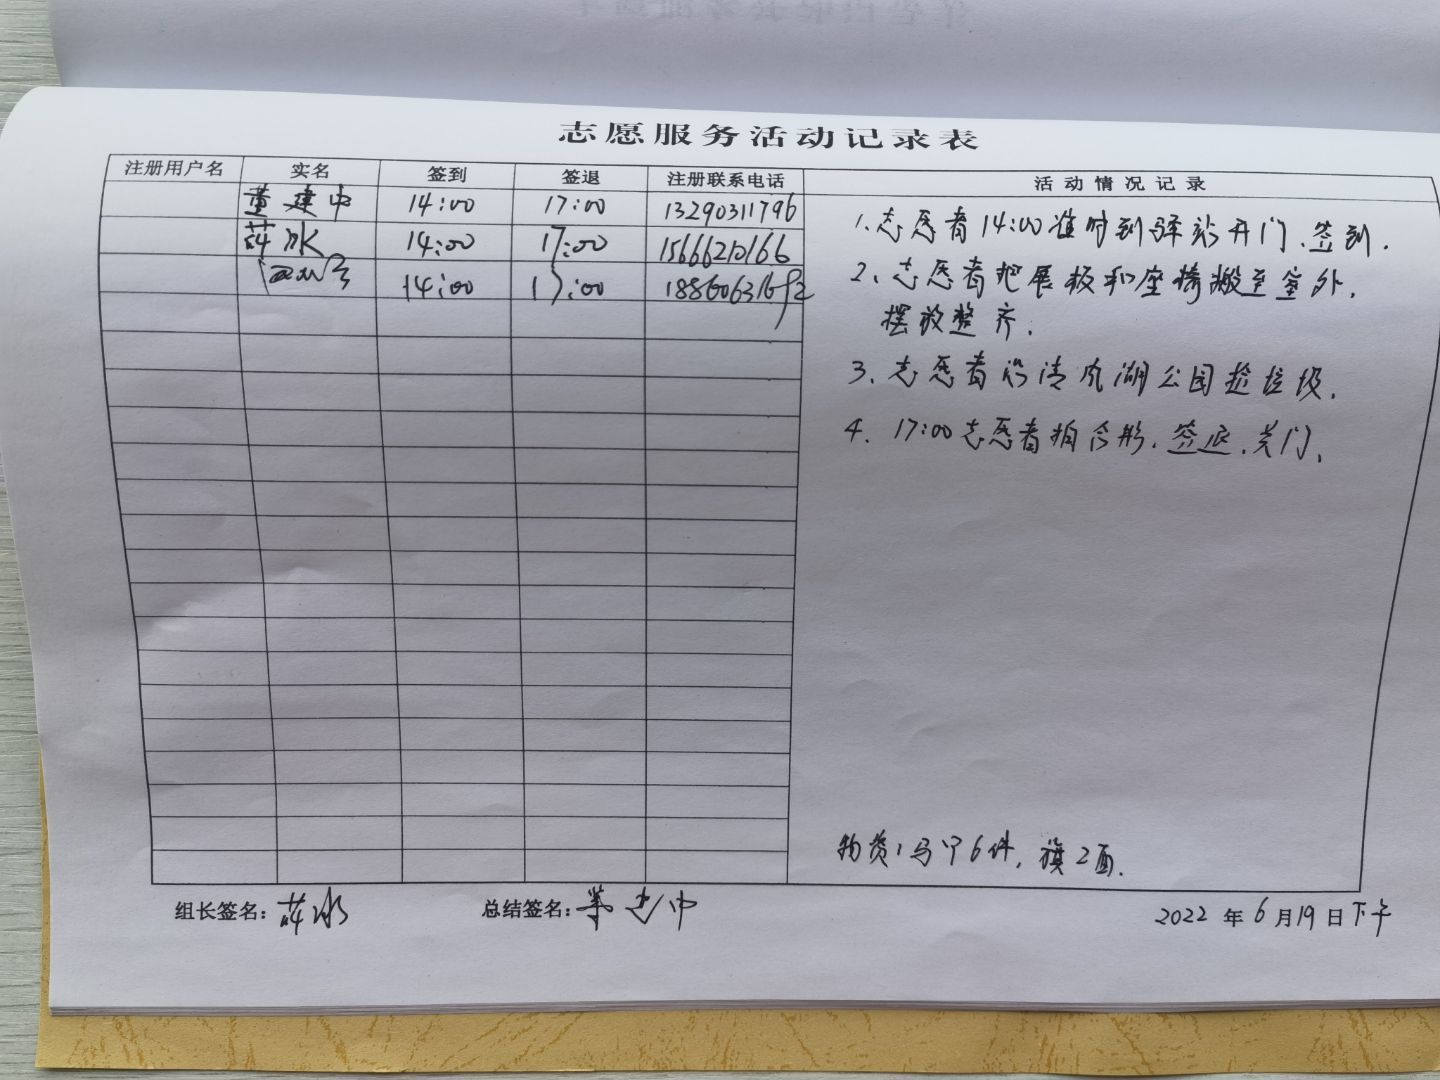 志愿服务活动记录表
注册用户名 实名 签到 签退 注册联系电话 活动情况记录
董建中 14:00 17:00 13290311796
薛冰 14:00 17:00 15666210166
14:00 17:00
1、志愿者14:00准时到驿站开门、签到.
2、志愿者把展板和座椅搬至室外,
摆放整齐.
3、志愿者沿清风湖公园捡垃圾.
4、17:00志愿者拍合影、签退、关门、
物资:马甲6件, 旗2面.
组长签名: 薛冰 总结签名: 董建中
2022 年 6 月 19 日 下午